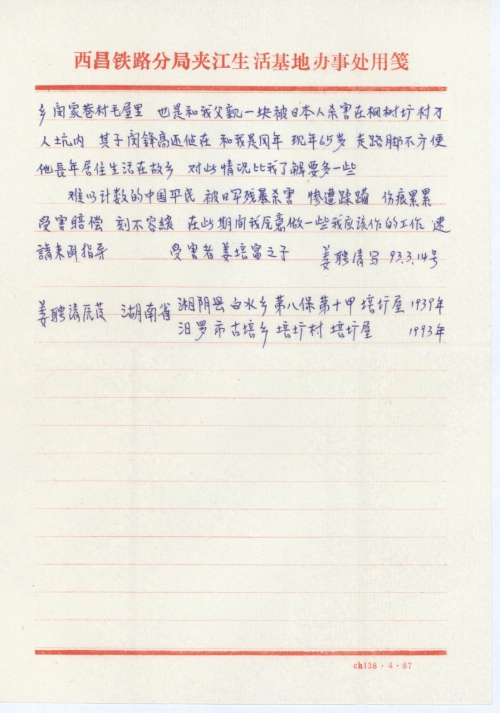 西昌铁路分局夹江生活基地办事处用笺
乡闵家巷村毛屋里 也是和我父亲一块被日本人杀害在枫树坊村万
人坑内 其子闵锋高还健在 和我是同年 现年65岁 走路脚不方便
他長年居住生活在故乡 对此情况比我了解要多一些
难以计数的中国平民 被日军残暴杀害 惨遭蹂躏 伤痕累累
受害赔偿 刻不容缓 在此期间我愿意做一些我应该作的工作 速
請来函指导 受害者姜培富之子 姜聘清写 93.3.14号
姜聘清原笈 湖南省 湘阴县白水乡第八保第十甲塘圻屋 1939年
汨罗市古培乡 培圻村 培圻屋 1993年
ch138·4·87